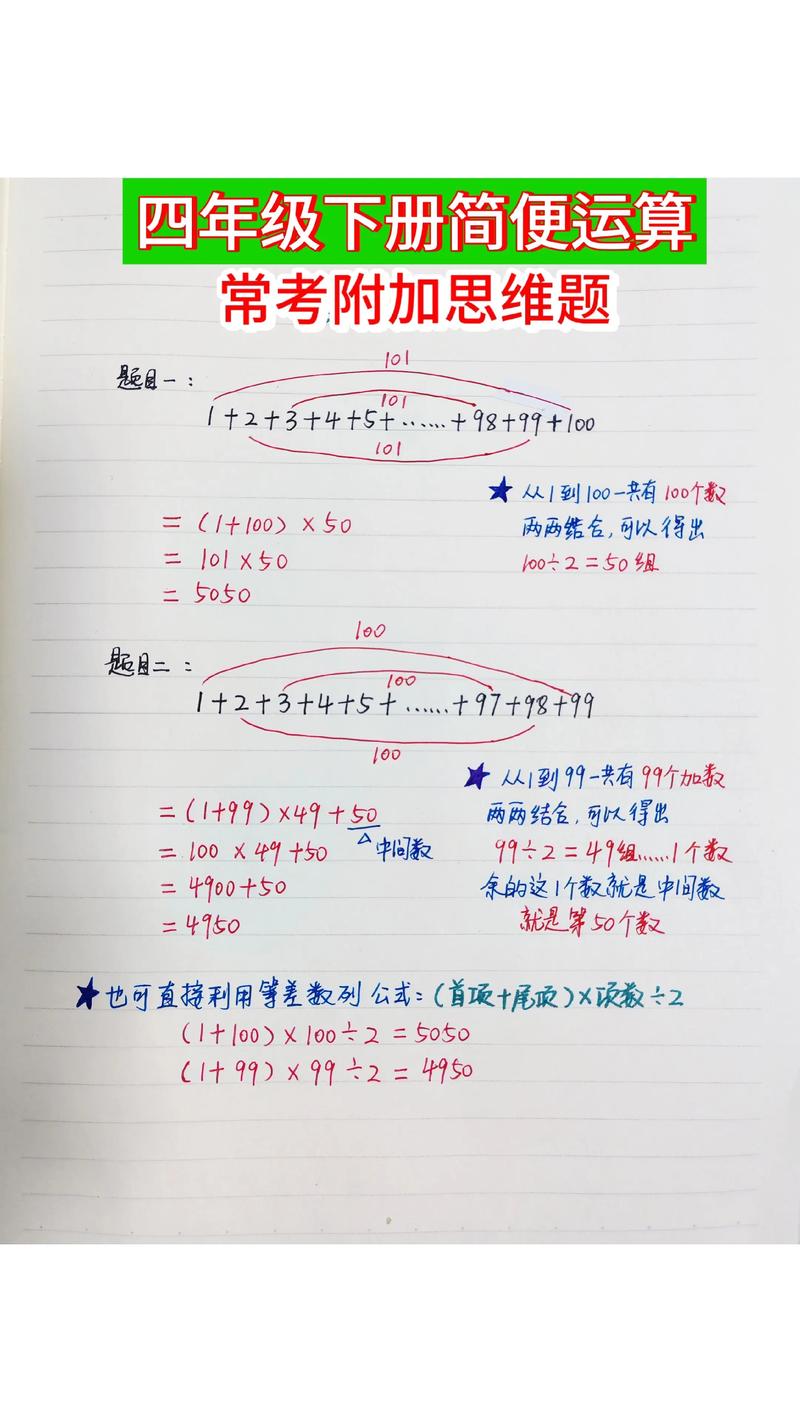 四年级下册简便运算
常考附加思维题
101
题目一：
101
1+2+3+4+5+……+98+99+100
101
★ 从1到100一共有100个数
=(1+100)×50
两两结合,可以得出
=101×50
100÷2=50组
=5050
100
题目二：
100
1+2+3+4+5+……+97+98+99
100
★ 从1到99一共有99个加数
=(1+99)×49+50
两两结合,可以得出
=100×49+50
△中间数
99÷2=49组……1个数
=4900+50
余的这1个数就是中间数
=4950
就是第50个数
★也可直接利用等差数列公式:(首项+尾项)×项数÷2
(1+100)×100÷2=5050
(1+99)×99÷2=4950